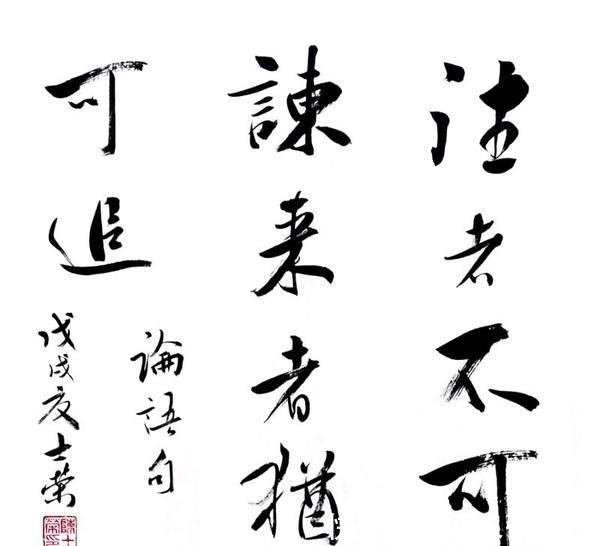 往者不可
諫来者猶
可追
論語句
戊戌夏士榮